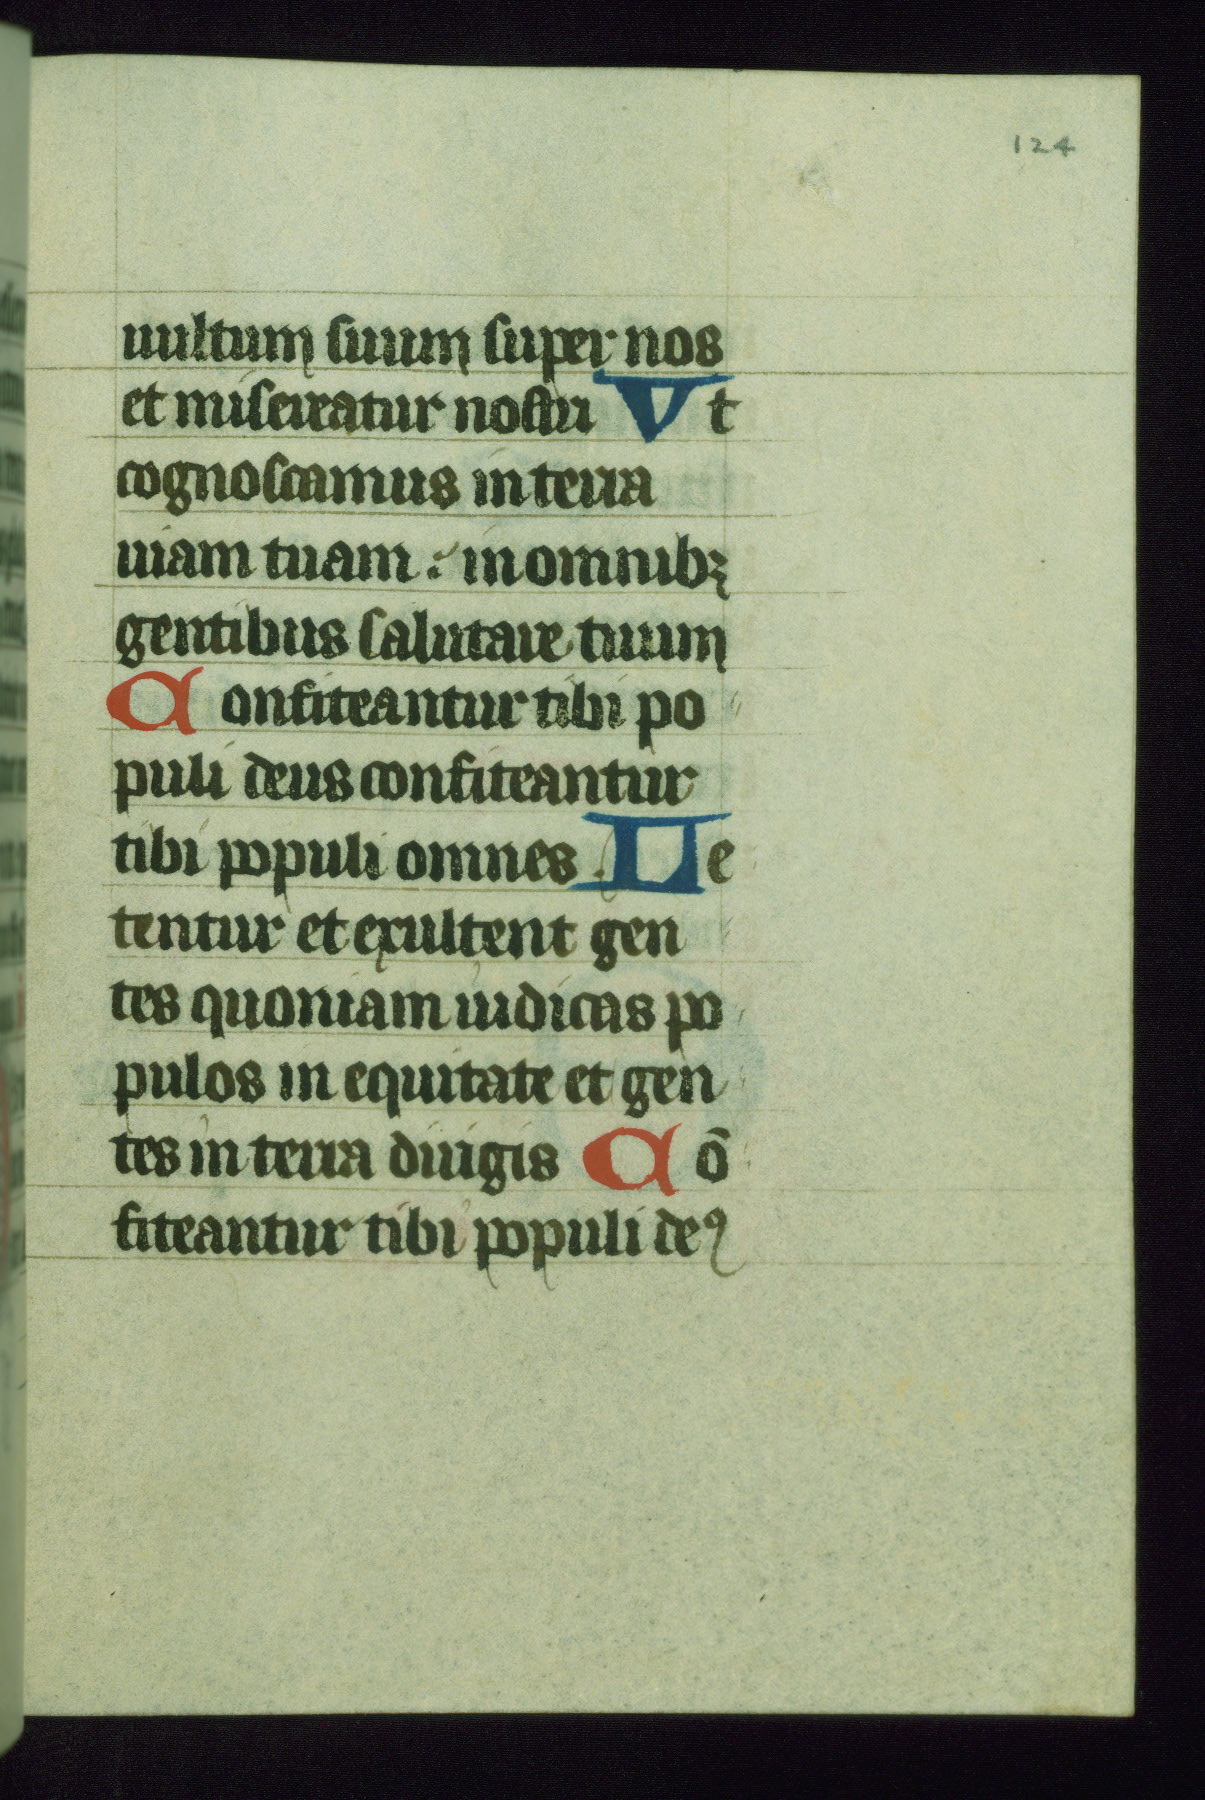 124
uultum suum super nos
et misereatur nostri Vt
cognoscamus in terra
uiam tuam : in omnibꝫ
gentibus salutare tuum
Confiteantur tibi po
puli deus confiteantur
tibi populi omnes . Le
tentur et exultent gen
tes quoniam iudicas po
pulos in equitate et gen
tes in terra dirigis Cō
fiteantur tibi populi deꝰ